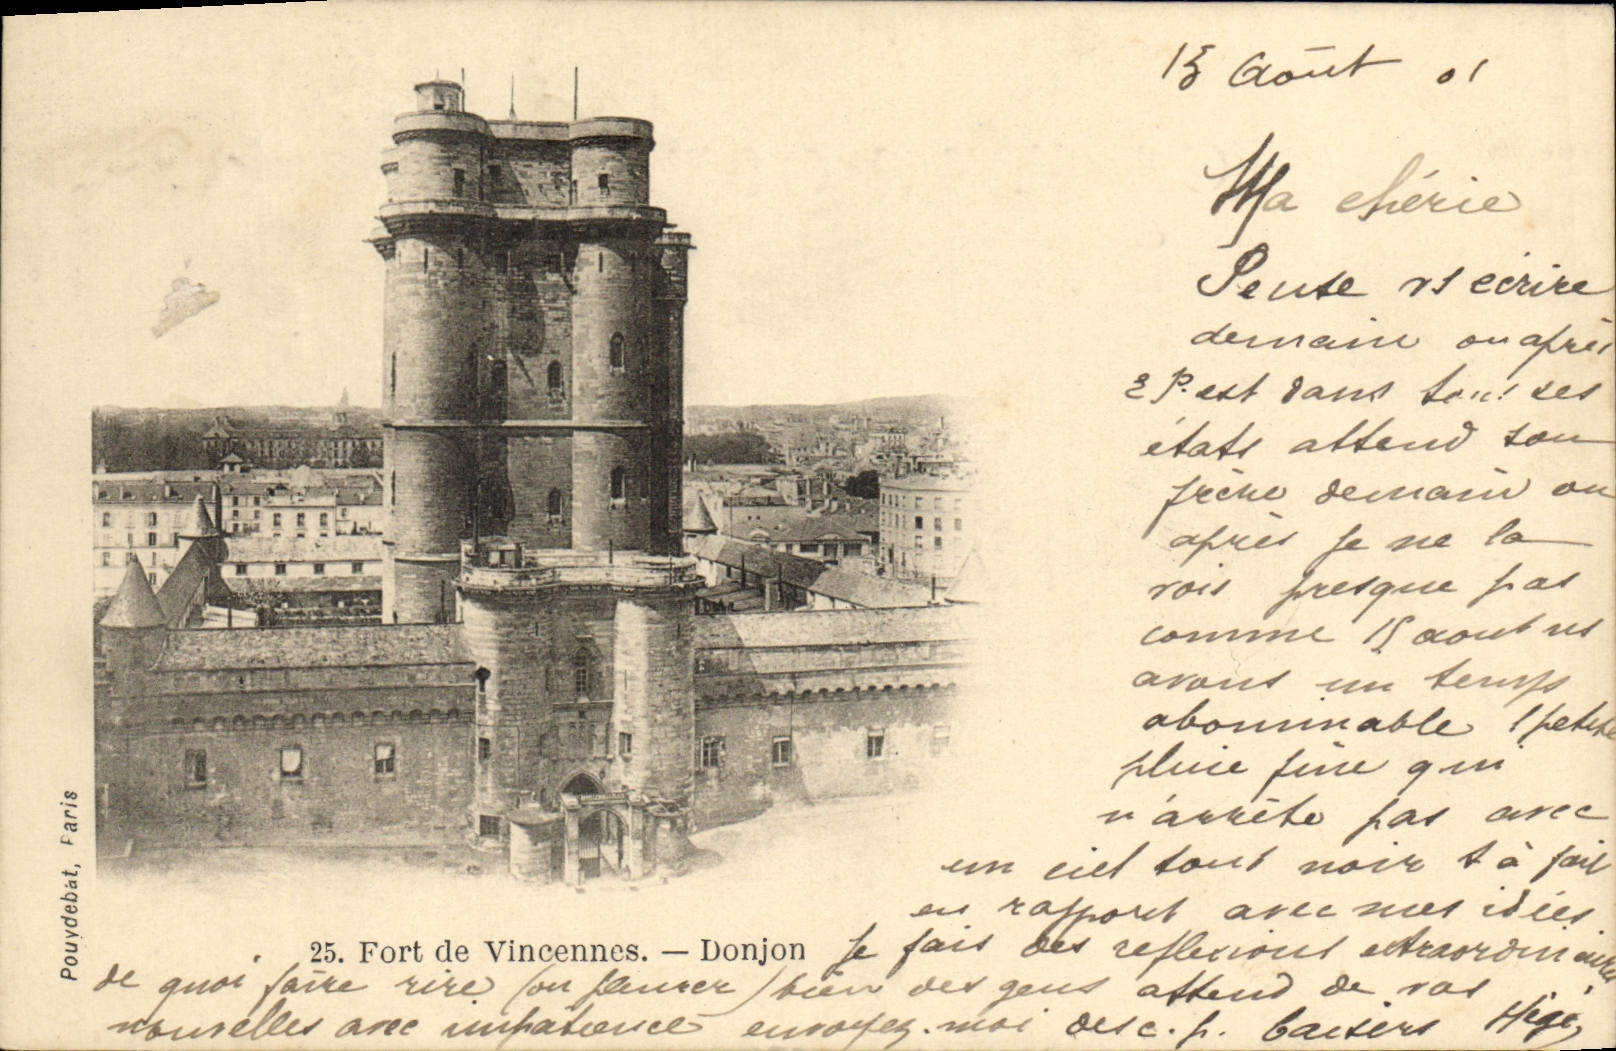 15 Août 01
Ma chérie
Pense vs écrire
demain ou après
E P. est dans tous ses
états attend son
frère demain ou
après je ne la
vois presque pas
comme 15 aout ns
avons un temps
abominable 1 petite
pluie fine qui
n'arrête pas avec
un ciel tout noir t à fait
en rapport avec mes idées
Je fais des reflexions extraordinaires
de quoi faire rire (ou pleurer) bien des gens attend de vos
nouvelles avec impatience envoyez-moi des c. p. baisers
25. Fort de Vincennes. — Donjon
Pouydebat, Paris